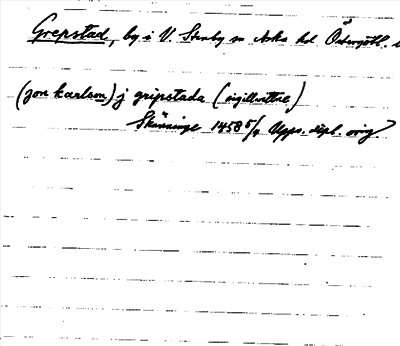 Grepstad, by i V. Stenby sn Aska hd Östergötl.
(jon karlson) j gripstada (sigillvittne)
Skänninge 1458 5/9 Upps. dipl. orig.